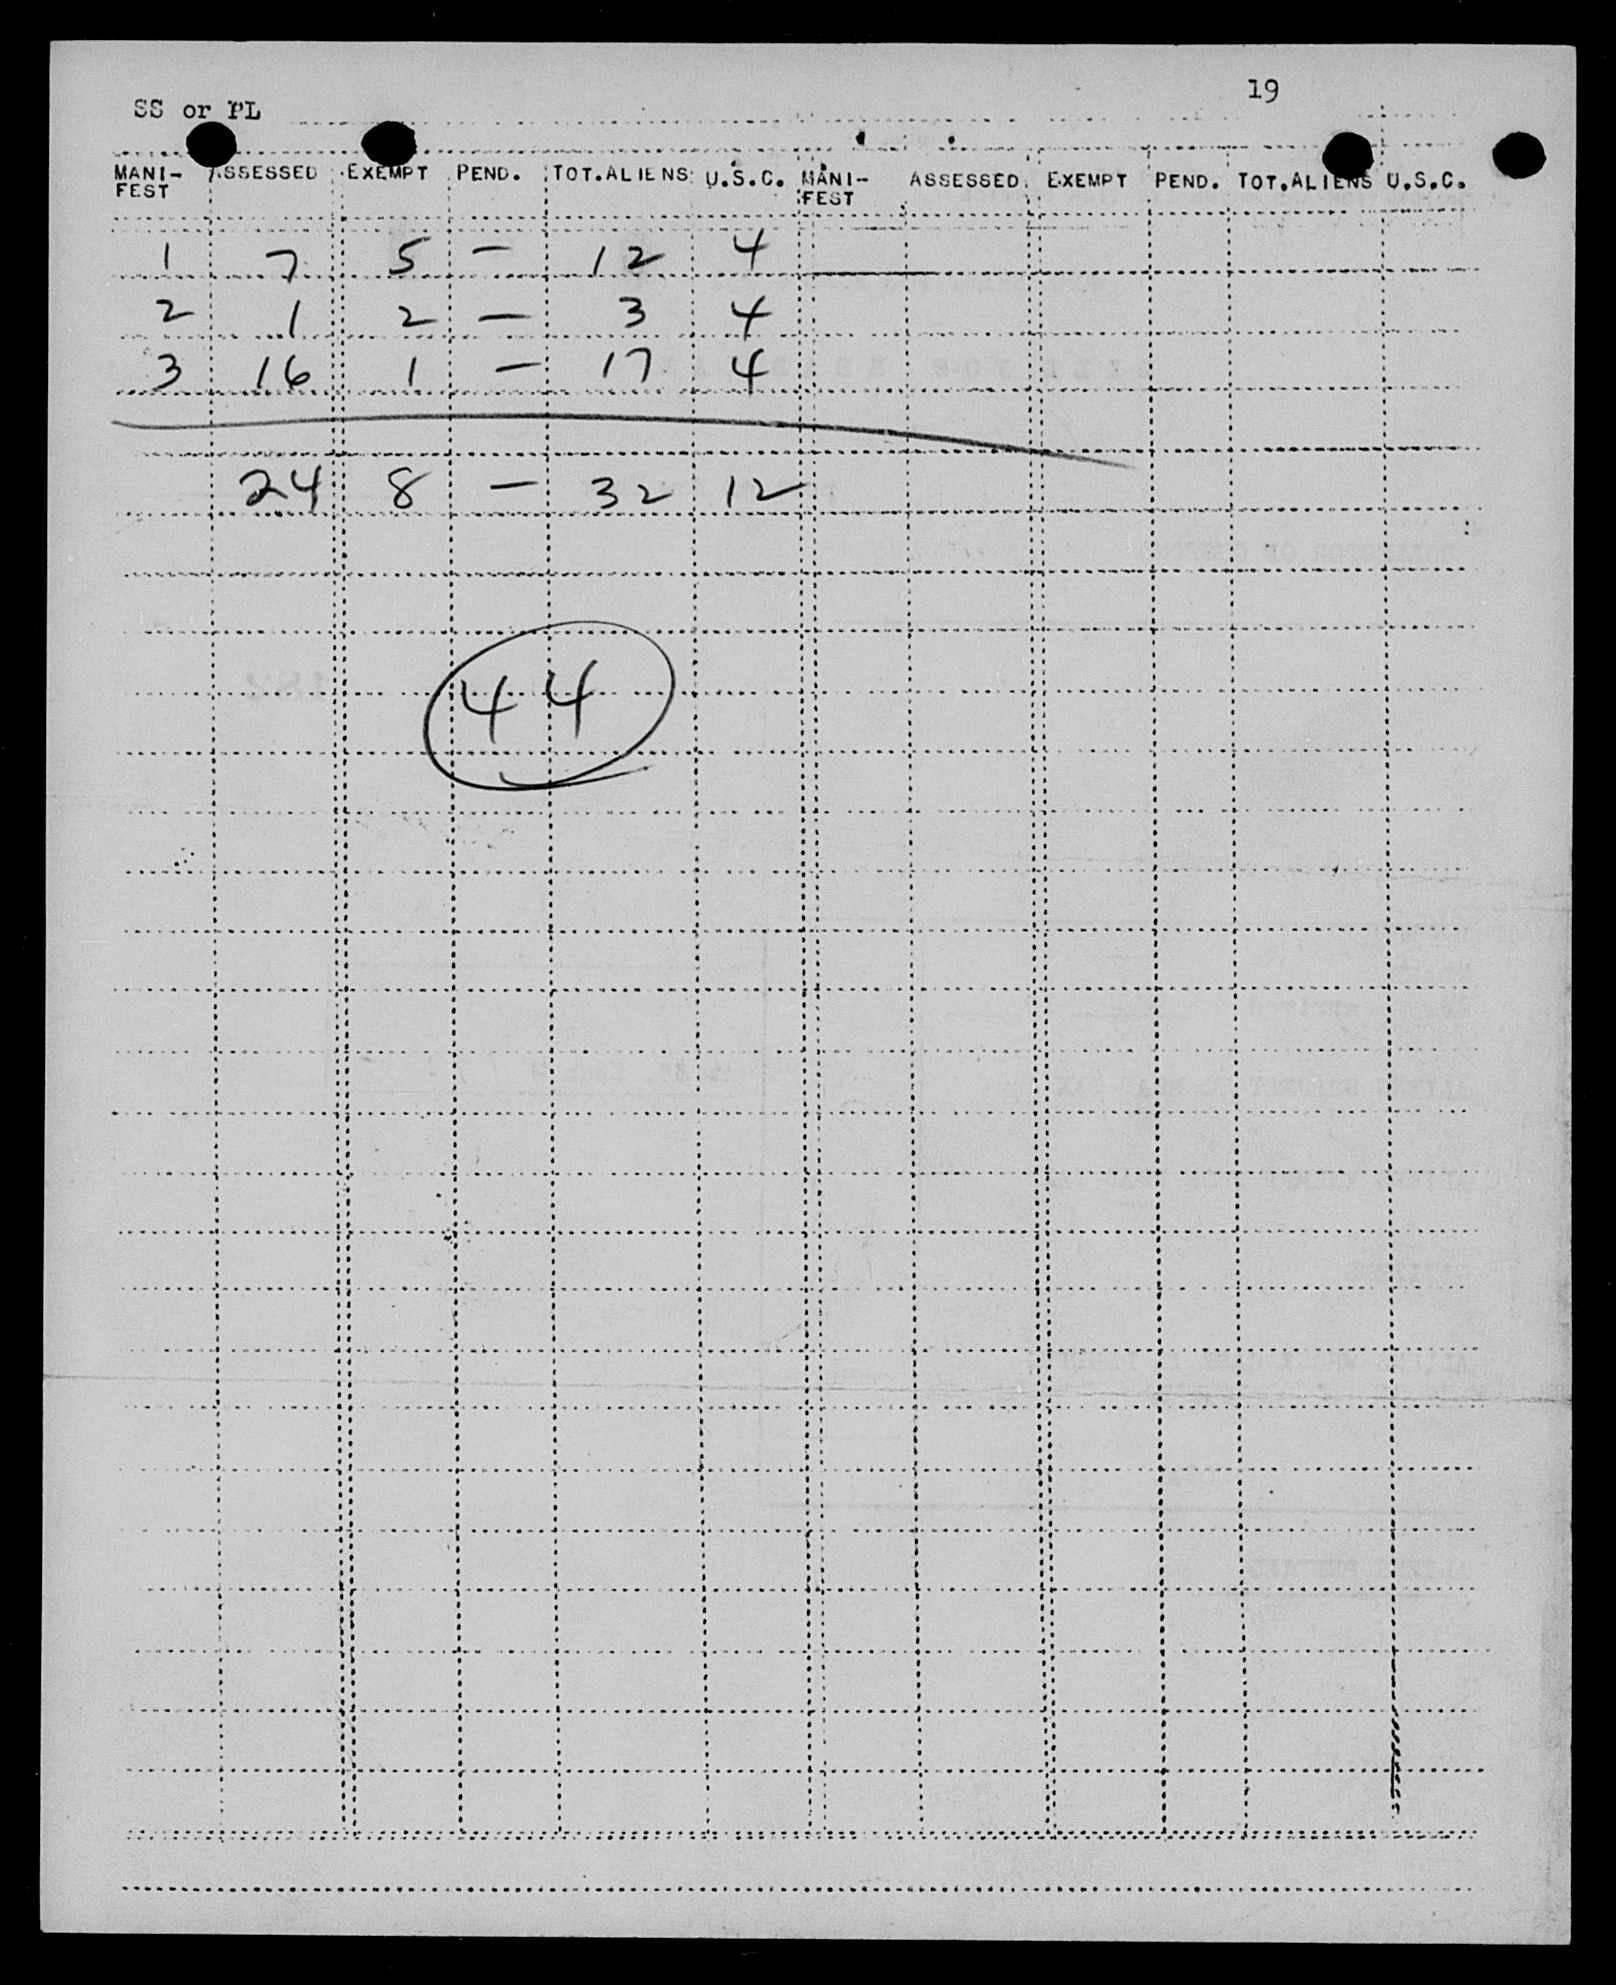 19
SS or PL
MANI-FEST ASSESSED EXEMPT PEND. TOT.ALIENS U.S.C. MANI-FEST ASSESSED EXEMPT PEND. TOT.ALIENS U.S.C.
1 7 5 — 12 4
2 1 2 — 3 4
3 16 1 — 17 4
24 8 — 32 12
44